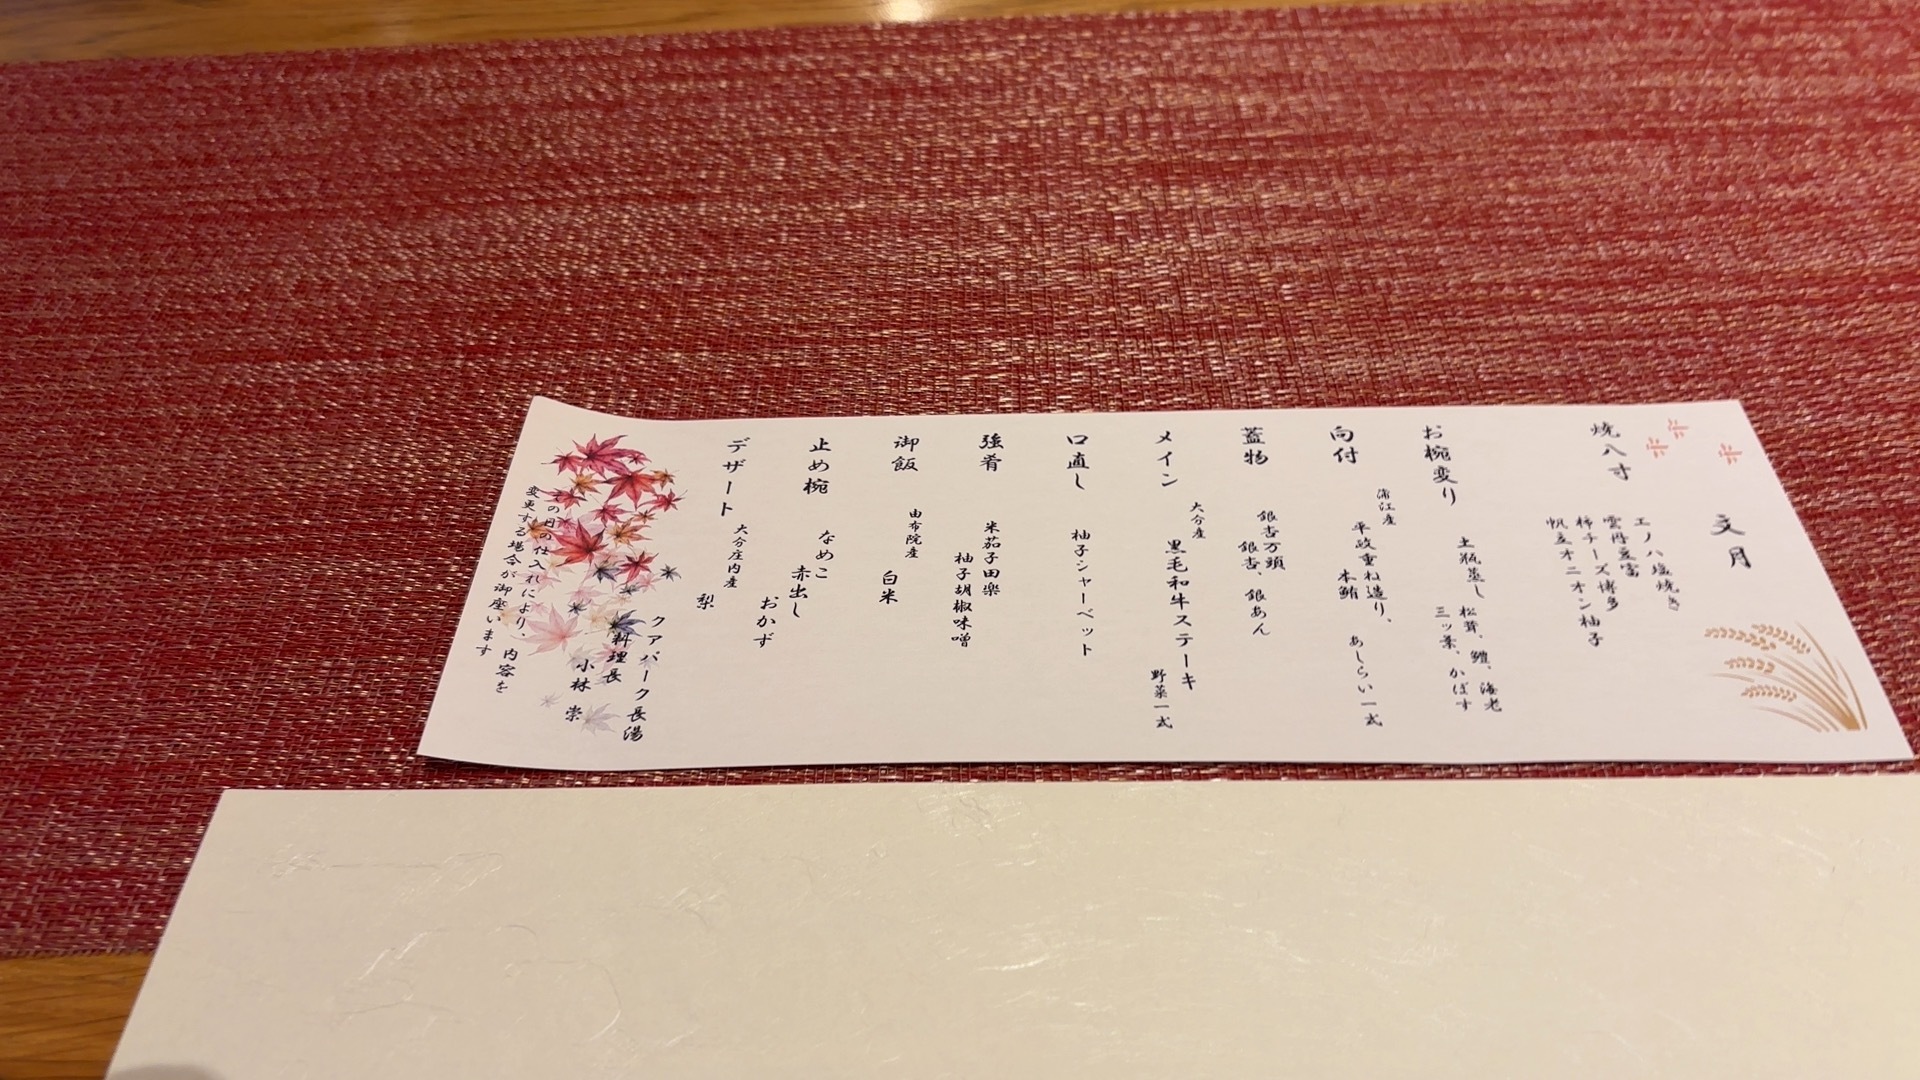 文月
焼八寸
エノハ塩焼き
雲丹豆富
柿チーズ博多
帆立オニオン柚子
お椀変り
土瓶蒸し
松茸、鱧、海老
三ッ葉、かぼす
向付
蒲江産
平政重ね造り、
本鮪
あしらい一式
蓋物
銀杏万頭
銀杏、銀あん
メイン
大分産
黒毛和牛ステーキ
野菜一式
口直し
柚子シャーベット
強肴
米茄子田楽
柚子胡椒味噌
御飯
由布院産
白米
止め椀
なめこ
赤出し
おかず
デザート
大分庄内産
梨
クアパーク長湯
料理長
小林 崇
その日の仕入れにより、内容を
変更する場合が御座います